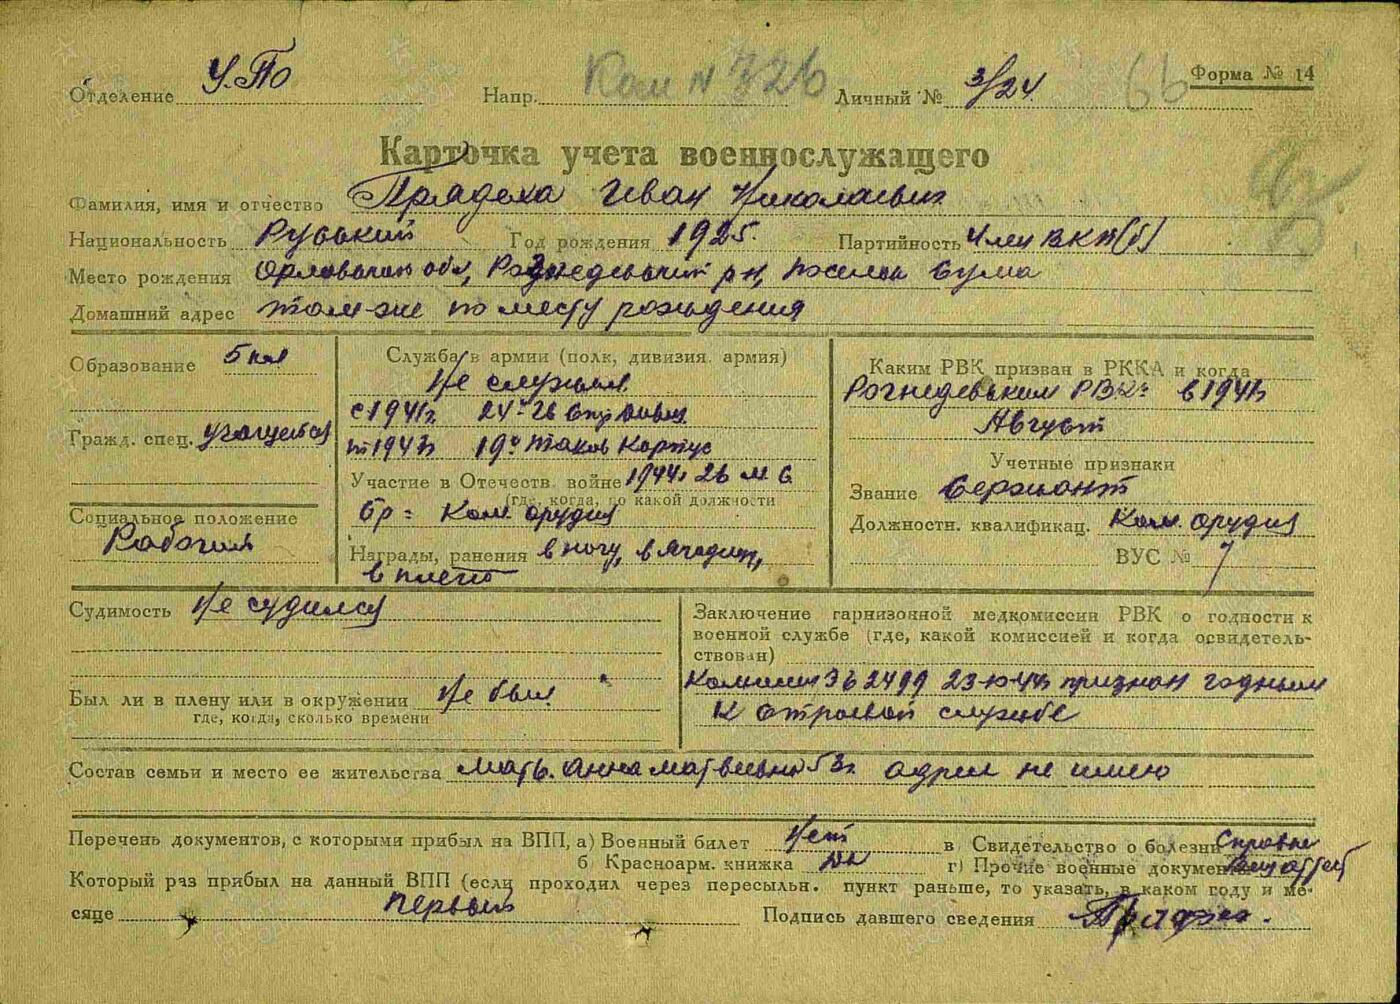 Форма № 14
Отделение У.ПО Напр. Ком N 326 Личный № 3/24 66
Карточка учета военнослужащего
Фамилия, имя и отчество Прядеха Иван Николаевич
Национальность Русский Год рождения 1925. Партийность Член ВКП(б)
Место рождения Орловская обл, Рогнединский р-н, поселок
Домашний адрес там-же по месту рождения
Образование 5 кл
Гражд. спец. учащейся
Социальное положение
Рабочий
Служба в армии (полк, дивизия, армия)
Не служил
с 1941г. 24-
1943 19й Танков Корпус
Участие в Отечеств. войне 1944г 26 м с
(где, когда, по какой должности
бр = Ком. орудия
Награды, ранения в ногу, в ягодиц,
в плечо
Каким РВК призван в РККА и когда
Рогнединским РВК в 1943
Август
Учетные признаки
Звание Сержант
Должностн. квалификац. Ком. орудия
ВУС № 7
Судимость Не судился
Был ли в плену или в окружении Не был
где, когда, сколько времени
Заключение гарнизонной медкомиссии РВК о годности к
военной службе (где, какой комиссией и когда освидетель-
ствован)
Комиссии ЭГ 2499 признан годным
к строевой службе
Состав семьи и место ее жительства Мать. Анна Матвеевна адрес не имею
Перечень документов, с которыми прибыл на ВПП, а) Военный билет Нет в Свидетельство о болезни Справка
б Красноарм. книжка да г) Прочие военные докумен
Который раз прибыл на данный ВПП (если проходил через пересыльн. пункт раньше, то указать, в каком году и ме-
сяце Первый Подпись давшего сведения